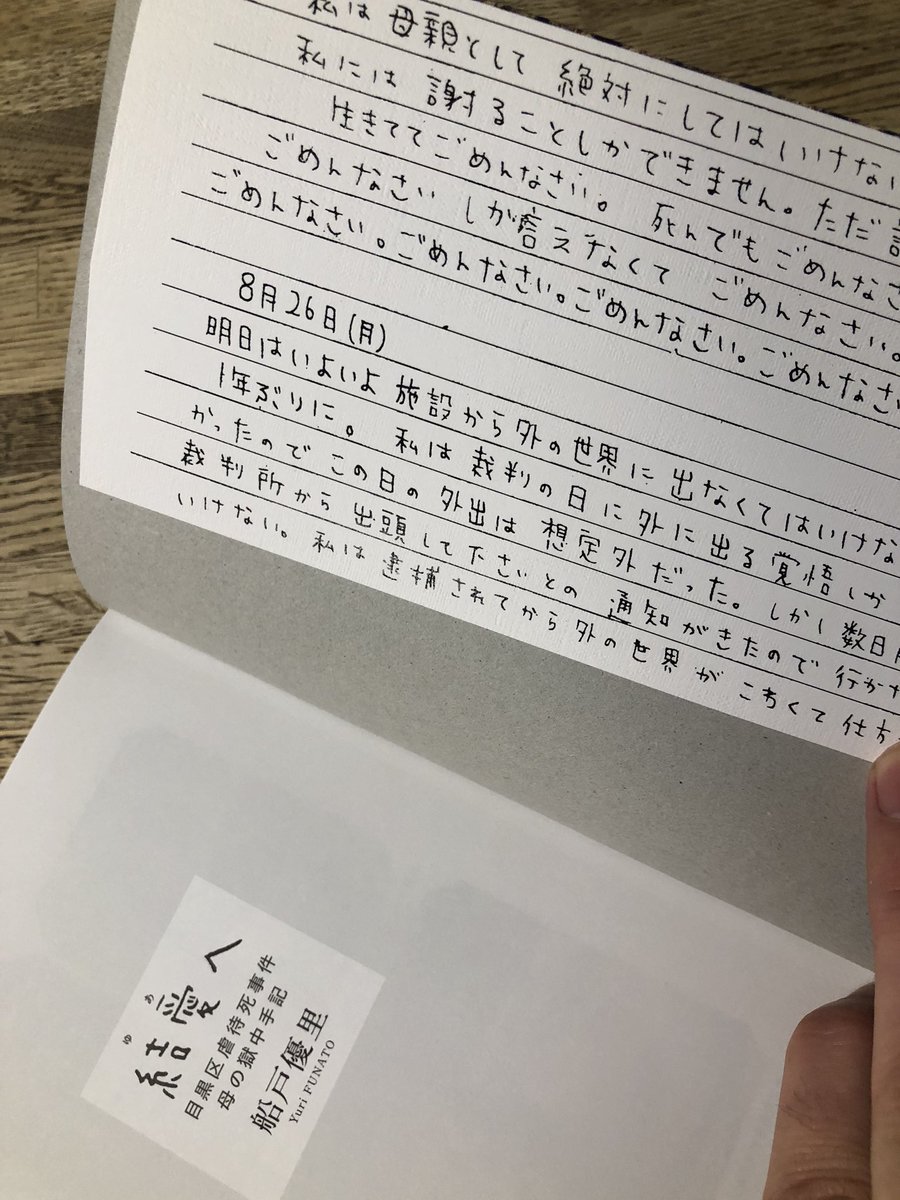 私は母親として 絶対にしてはいけない
私には 謝ることしかできません。ただ
生きててごめんなさい。 死んでもごめんなさ
ごめんなさい しか言えなくて ごめんなさい。
ごめんなさい。ごめんなさい。ごめんなさい。ごめんなさい
8月26日(月)
明日はいよいよ 施設から外の世界に 出なくてはいけな
1年ぶりに。 私は 裁判の日に外に出る覚悟しか
かったので この日の 外出は 想定外だった。しかし 数日
裁判所から 出頭して下さいとの 通知がきたので 行かな
いけない。 私は 逮捕されてから外の世界が こわくて 仕方
結愛へ
ゆ あ
目黒区虐待死事件
母の獄中手記
船戸優里
Yuri FUNATO